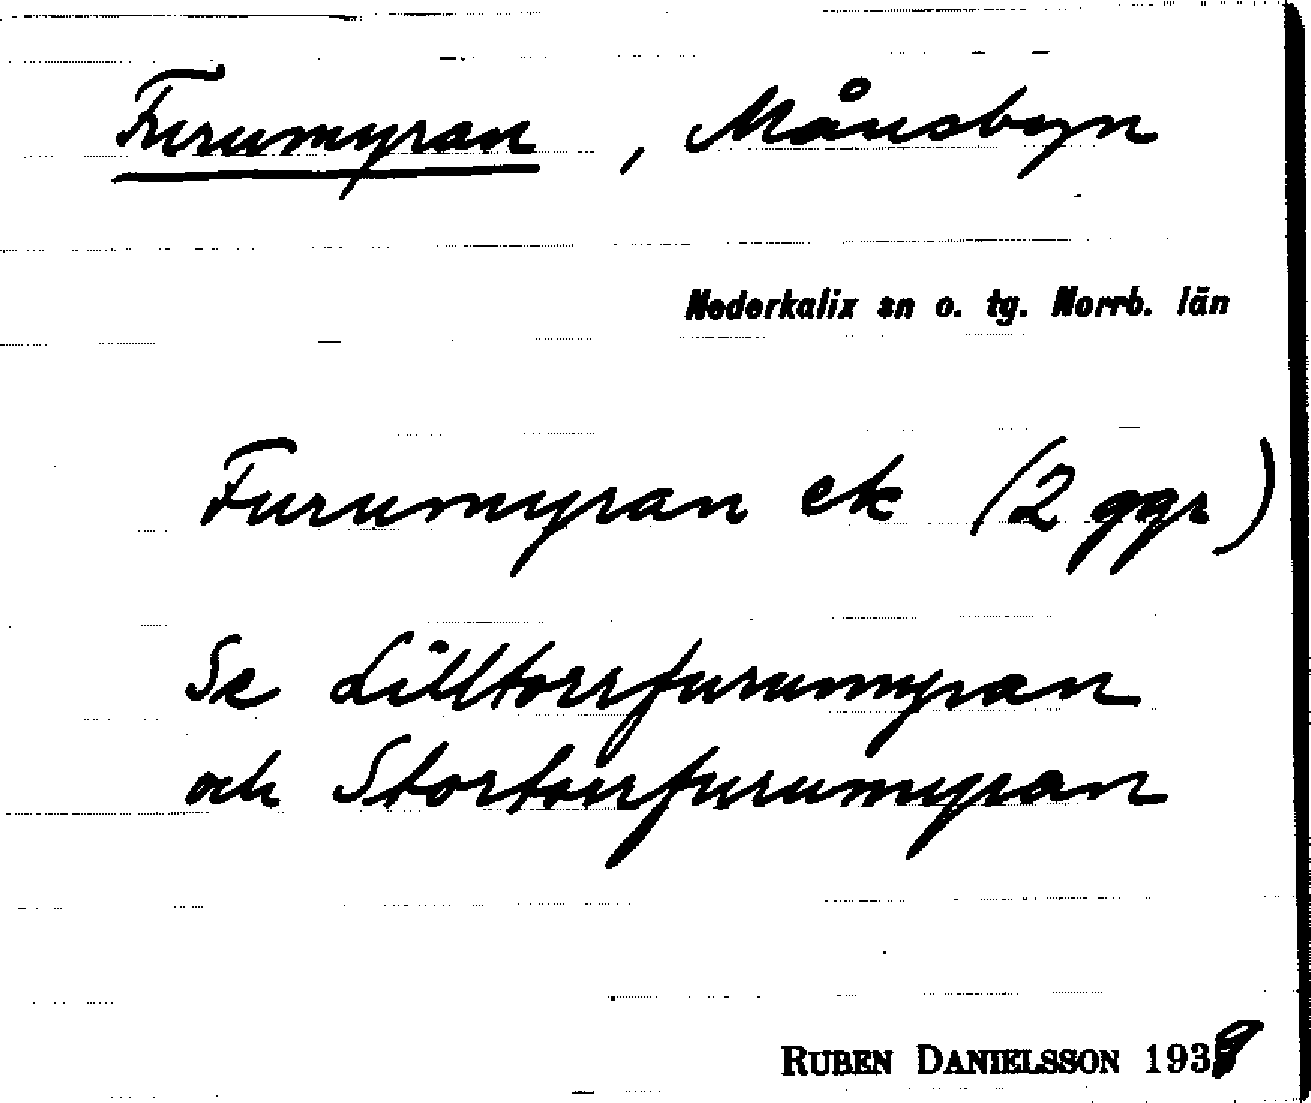 Furumyran, Månsbyn
Nederkalix sn o. tg. Norrb. län
Furumyran ek (2 ggr)
Se Lilltorrfurumyran
och Stortorrfurumyran
RUBEN DANIELSSON 1939